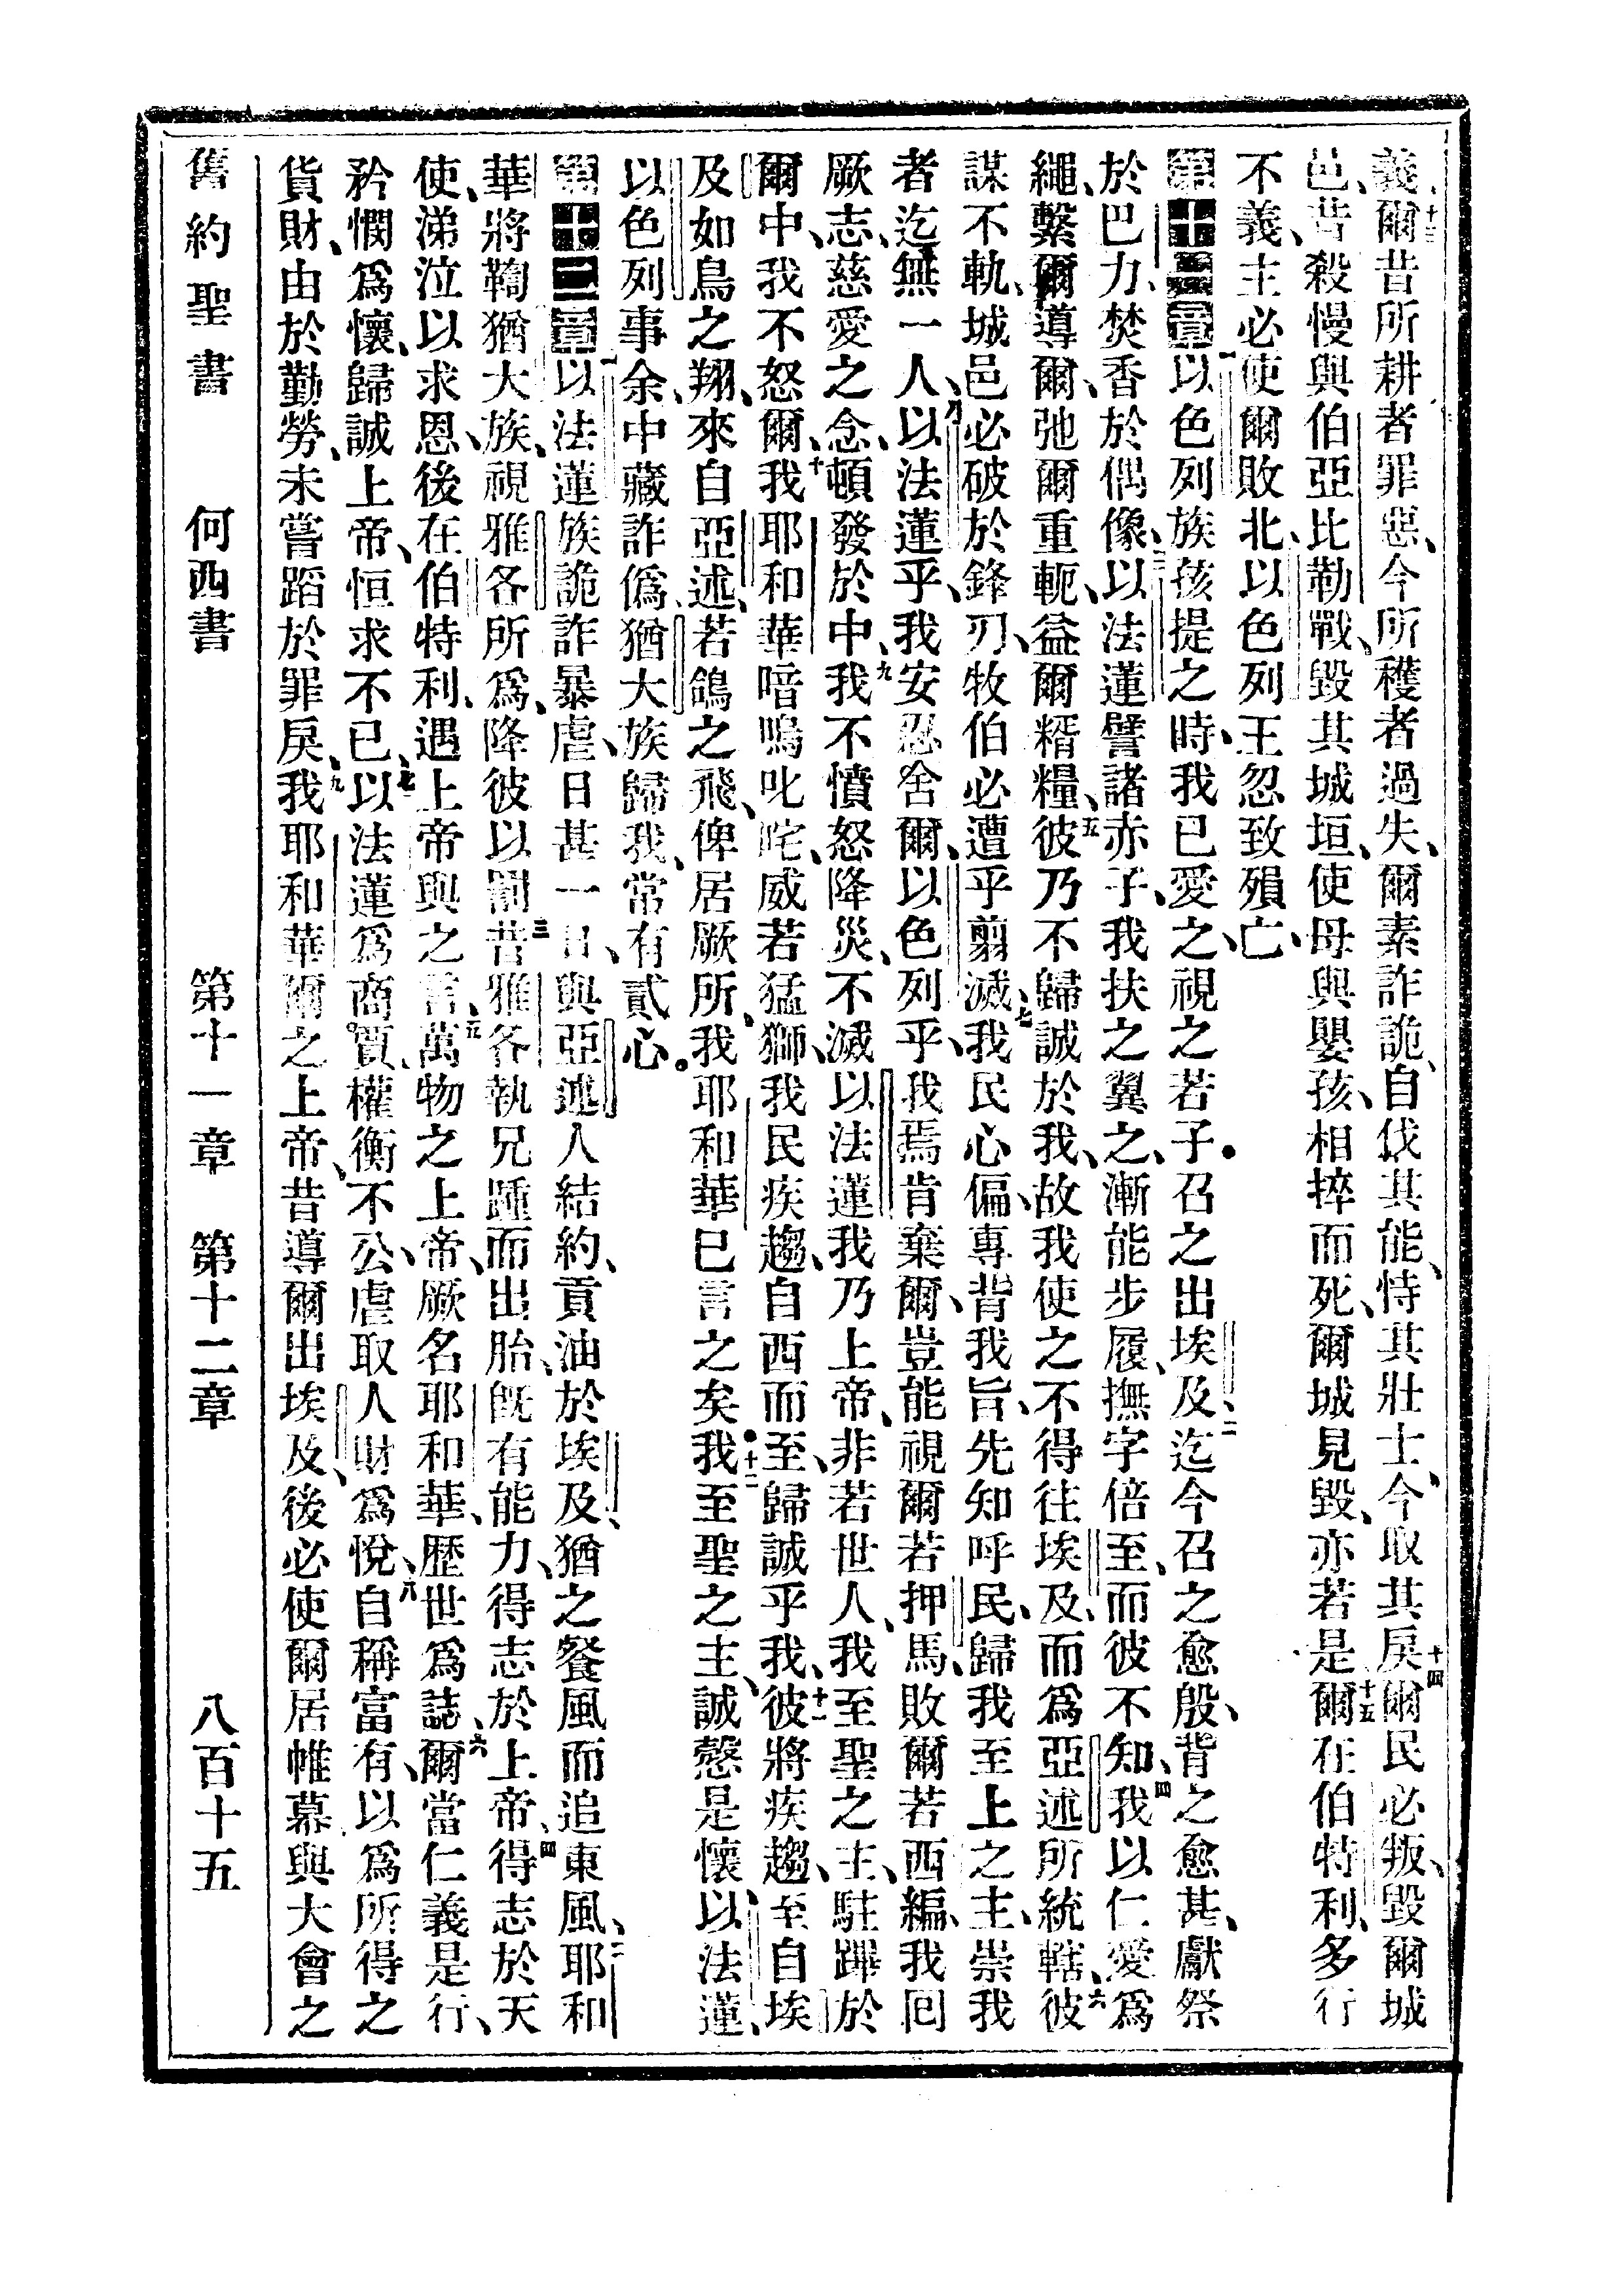 義、十三爾昔所耕者罪惡、今所穫者過失、爾素詐詭、自伐其能、恃其壯士、今取其戾、十四爾民必叛、毀爾城
邑、昔殺慢與伯亞比勒戰、毀其城垣、使母與嬰孩、相捽而死、爾城見毀、亦若是、十五爾在伯特利、多行
不義、主必使爾敗北、以色列王忽致殞亡、
第十一章一以色列族孩提之時、我已愛之、視之若子、召之出埃及、二迄今召之愈殷、背之愈甚、獻祭
於巴力、焚香於偶像、三以法蓮譬諸赤子、我扶之翼之、漸能步履、撫字倍至、而彼不知、四我以仁愛爲
繩、繫爾導爾、弛爾重軛、益爾糈糧、五彼乃不歸誠於我、故我使之不得往埃及、而爲亞述所統轄、六彼
謀不軌、城邑必破於鋒刃、牧伯必遭乎翦滅、七我民心偏、專背我旨、先知呼民、歸我至上之主、崇我
者迄無一人、八以法蓮乎、我安忍舍爾、以色列乎、我焉肯棄爾、豈能視爾若押馬、敗爾若西編、我回
厥志、慈愛之念、頓發於中、九我不憤怒降災、不滅以法蓮、我乃上帝、非若世人、我至聖之主、駐蹕於
爾中、我不怒爾、十我耶和華喑嗚叱咤、威若猛獅、我民疾趨、自西而至、歸誠乎我、十一彼將疾趨、至自埃
及、如鳥之翔、來自亞述、若鴿之飛、俾居厥所、我耶和華已言之矣。十二我至聖之主、誠愨是懷、以法蓮、
以色列事余、中藏詐僞、猶大族歸我、常有貳心。
第十二章一以法蓮族詭詐暴虐、日甚一日、與亞述人結約、貢油於埃及、猶之餐風而追東風、二耶和
華將鞫猶大族、視雅各所爲、降彼以罰、三昔雅各執兄踵而出胎、旣有能力、得志於上帝、四得志於天
使、涕泣以求恩、後在伯特利、遇上帝與之言、五萬物之上帝、厥名耶和華、歷世爲誌、六爾當仁義是行、
矜憫爲懷、歸誠上帝、恒求不已、七以法蓮爲商賈、權衡不公、虐取人財爲悅、八自稱富有、以爲所得之
貨財、由於勤勞、未嘗蹈於罪戾、九我耶和華爾之上帝、昔導爾出埃及、後必使爾居帷幕、與大會之
舊約聖書 何西書 第十一章 第十二章 八百十五